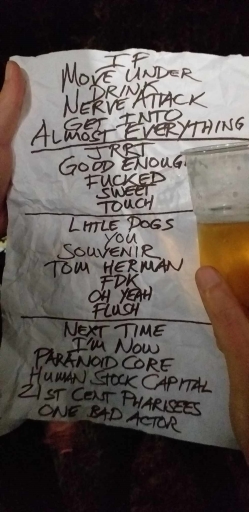 IF
MOVE UNDER
DRINK
NERVE ATTACK
GET INTO
ALMOST EVERYTHING
JRRT
GOOD ENOUG
FUCKED
SWEET
TOUCH
LITTLE DOGS
YOU
SOUVENIR
TOM HERMAN
FDK
OH YEAH
FLUSH
NEXT TIME
I'M NOW
PARANOID CORE
HUMAN STOCK CAPITAL
21ST CENT PHARISEES
ONE BAD ACTOR